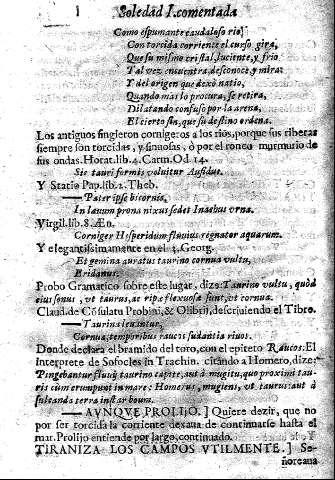 Soledad I. comentada
Como espumante caudaloso rio,
Con torcida corriente el curso gira,
Que su mismo cristal, luciente, y frio
Tal vez encuentra, desconoce, y mira:
Y del origen que dexò natio,
Quando mas lo procura, se retira,
Dilatando confuso por la arena,
El cierto fin, que su destino ordena.
Los antiguos fingieron cornigeros a los rios, porque sus riberas
siempre son torcidas, y sinuosas, ò por el ronco murmurio de
sus ondas. Horat. lib. 4. Carm. Od 14.
Sic tauri formis voluitur Aufidus.
Y Statio Pap. lib. 2. Theb.
— Pater ipse bicornis,
In lauum prona nixus sedet Inachus vrna.
Virgil. lib. 8. Æn.
Corniger Hesperidum fluuius regnator aquarum.
Y elegantissimamente en el 4. Georg.
Et gemina auratus taurino cornua vultu,
Eridanus.
Probo Gramatico sobre este lugar, dize: Taurino vultu, quòd
eius sonus, vt taurus, ac ripæ flexuosæ sunt, vt cornua.
Claud. de Cõsulatu Probini, & Olibrij, descriuiendo el Tibre.
— Taurina leuantur,
Cornua, temporibus raucos sudantia riuos.
Donde declara el bramido del toro, con el epiteto Raucos. El
Interprete de Sofocles in Trachin. citando a Homero, dize:
Pingebantur fluuij taurino capite, aut à mugitu, quo proximi tau-
ris cùm erumpunt in mare; Homerus, mugiens, vt taurus: aut à
sulcanda terra instar boum.
— AVNQVE PROLIJO.] Quiere dezir, que no
por ser torcida la corriente dexaua de continuarse hasta el
mar. Prolijo entiende por largo, continuado.
TIRANIZA LOS CAMPOS VTILMENTE.] Se-
ñoreaua